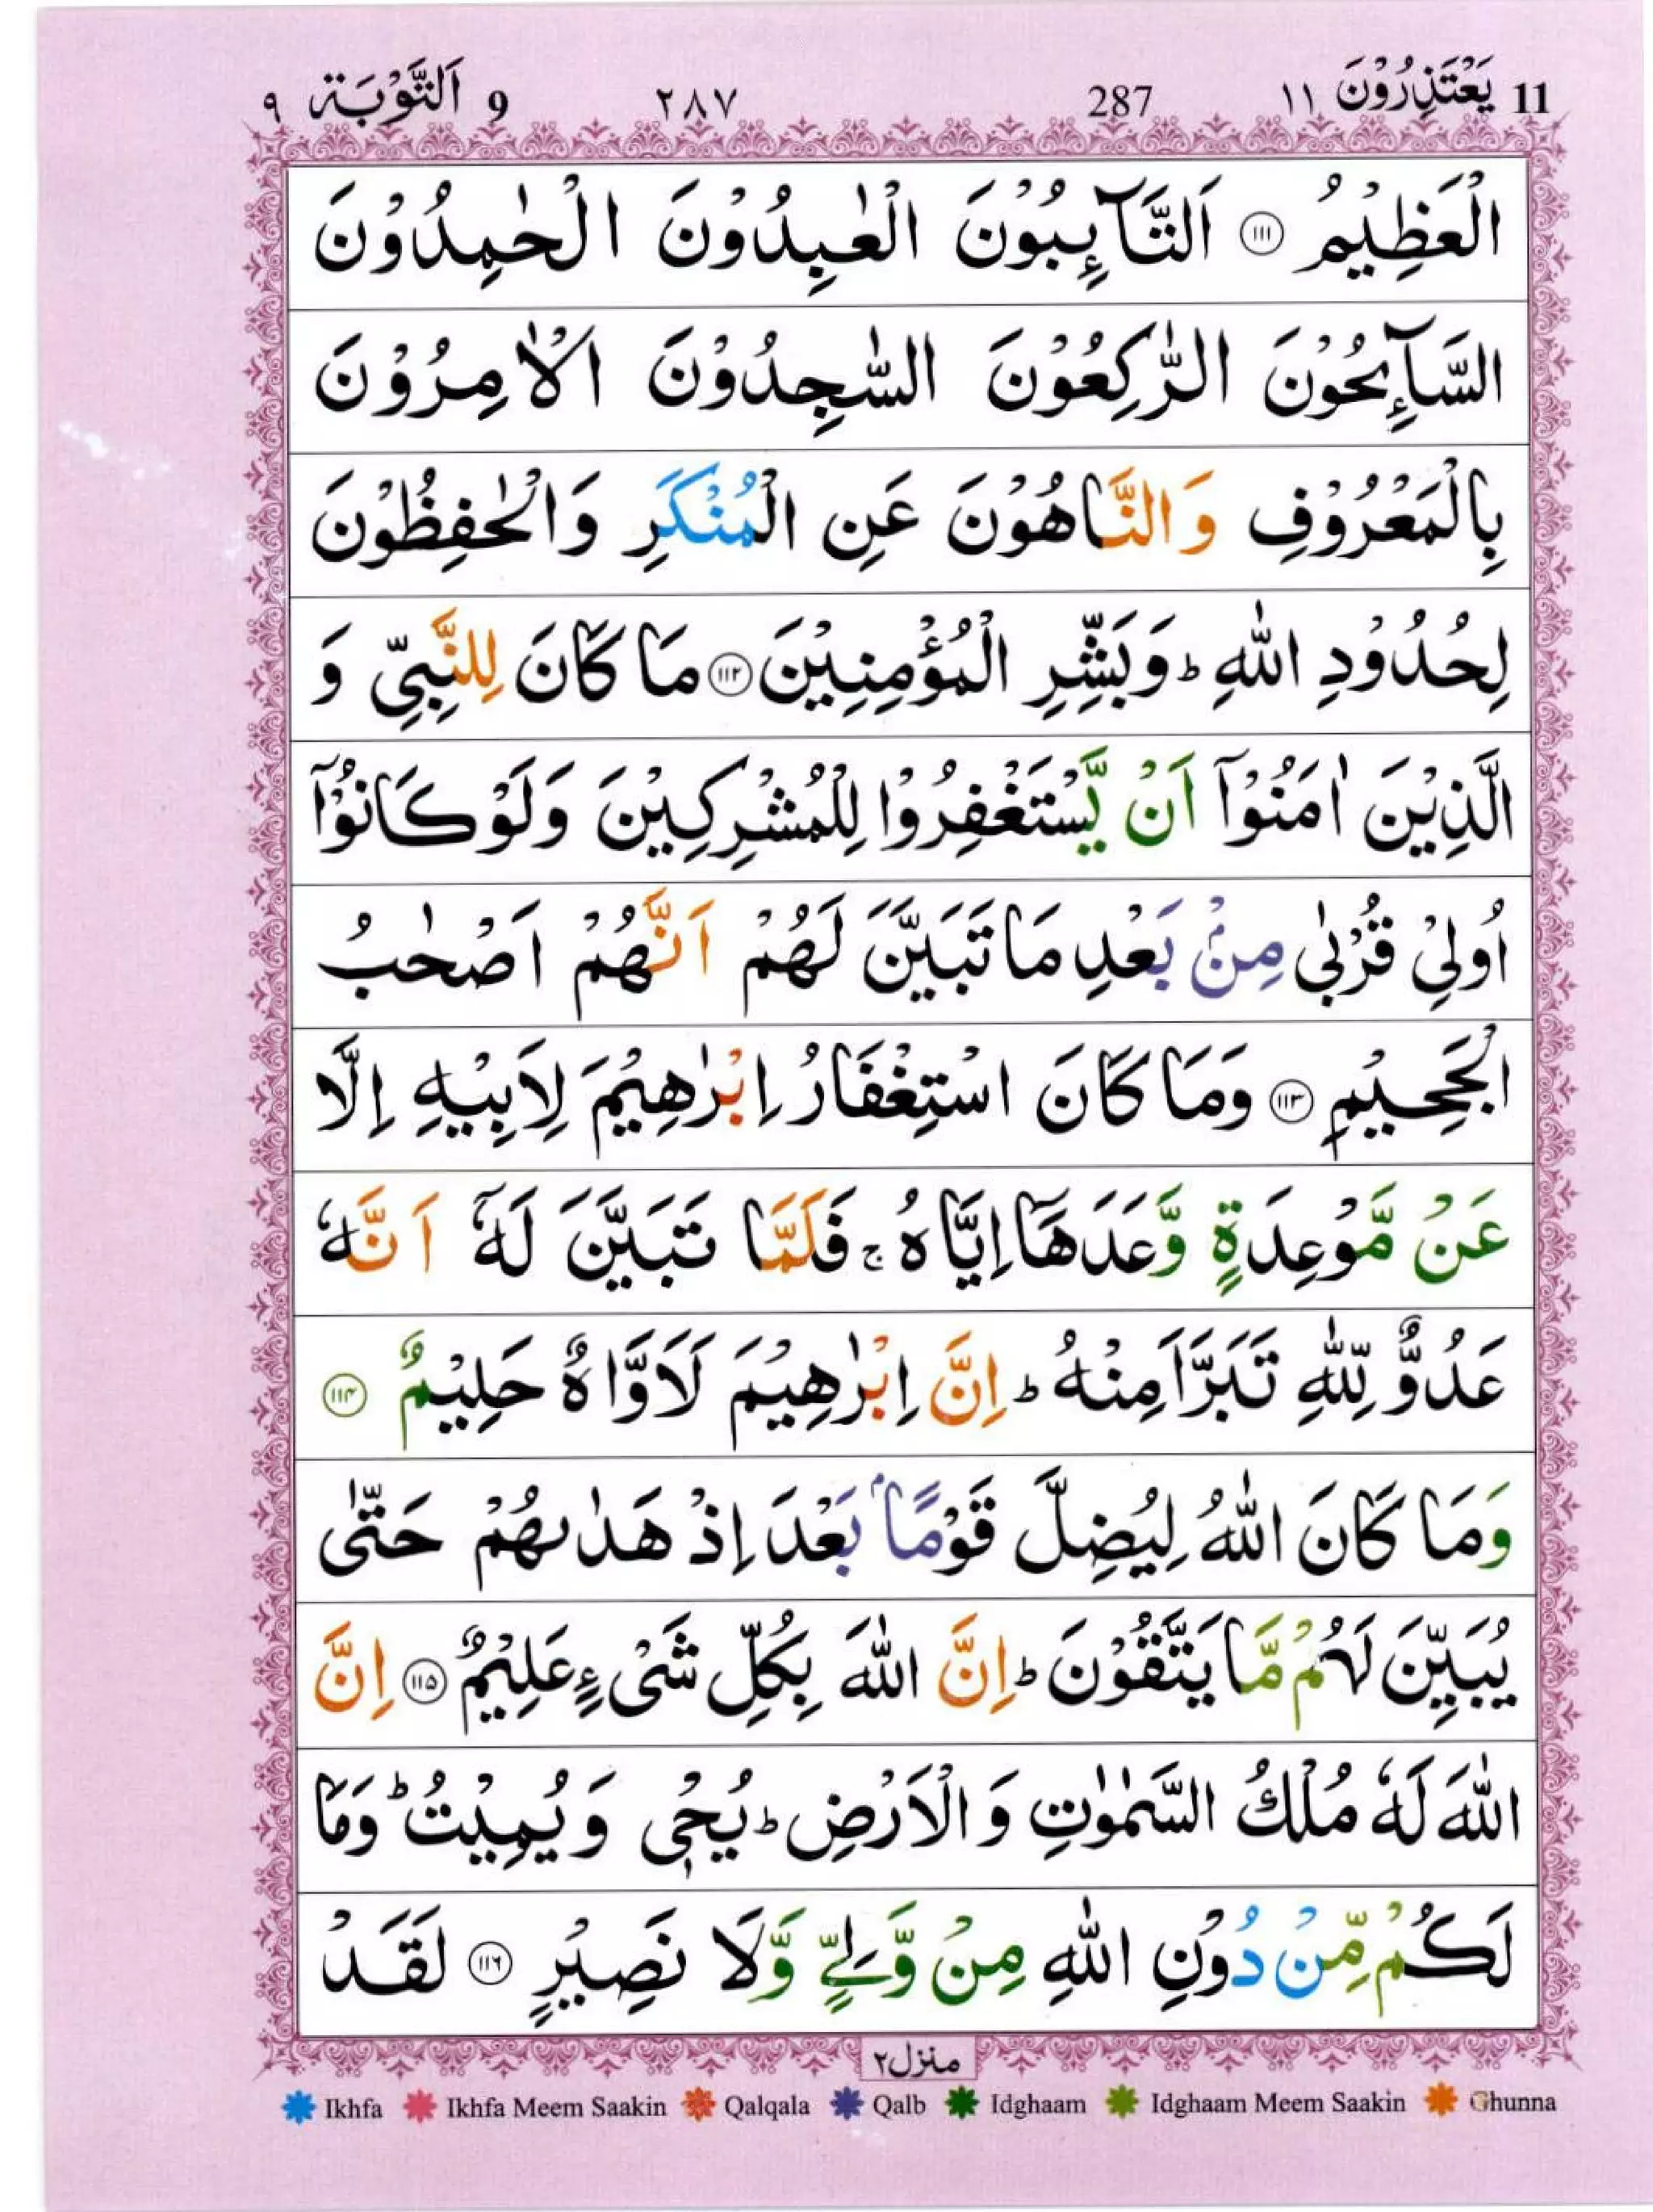 11 يَعْتَذِرُوْنَ ١١ 287 ٢٨٧ 9 اَلتَّوْبَة ٩
الْعَظِيْمُ ۝١١١ اَلتَّآئِبُوْنَ الْعٰبِدُوْنَ الْحٰمِدُوْنَ
السَّآئِحُوْنَ الرّٰكِعُوْنَ السّٰجِدُوْنَ الْاٰمِرُوْنَ
بِالْمَعْرُوْفِ وَالنَّاهُوْنَ عَنِ الْمُنْكَرِ وَالْحٰفِظُوْنَ
لِحُدُوْدِ اللّٰهِ ؕ وَبَشِّرِ الْمُؤْمِنِيْنَ ۝١١٢ مَا كَانَ لِلنَّبِيِّ وَ
الَّذِيْنَ اٰمَنُوْۤا اَنْ يَّسْتَغْفِرُوْا لِلْمُشْرِكِيْنَ وَلَوْ كَانُوْۤا
اُولِيْ قُرْبٰى مِنْۢ بَعْدِ مَا تَبَيَّنَ لَهُمْ اَنَّهُمْ اَصْحٰبُ
الْجَحِيْمِ ۝١١٣ وَمَا كَانَ اسْتِغْفَارُ اِبْرٰهِيْمَ لِاَبِيْهِ اِلَّا
عَنْ مَّوْعِدَةٍ وَّعَدَهَاۤ اِيَّاهُ ۚ فَلَمَّا تَبَيَّنَ لَهٗۤ اَنَّهٗ
عَدُوٌّ لِّلّٰهِ تَبَرَّاَ مِنْهُ ؕ اِنَّ اِبْرٰهِيْمَ لَاَوَّاهٌ حَلِيْمٌ ۝١١٤
وَمَا كَانَ اللّٰهُ لِيُضِلَّ قَوْمًاۢ بَعْدَ اِذْ هَدٰىهُمْ حَتّٰى
يُبَيِّنَ لَهُمْ مَّا يَتَّقُوْنَ ؕ اِنَّ اللّٰهَ بِكُلِّ شَيْءٍ عَلِيْمٌ ۝١١٥ اِنَّ
اللّٰهَ لَهٗ مُلْكُ السَّمٰوٰتِ وَالْاَرْضِ ؕ يُحْيٖ وَيُمِيْتُ ؕ وَمَا
لَكُمْ مِّنْ دُوْنِ اللّٰهِ مِنْ وَّلِيٍّ وَّلَا نَصِيْرٍ ۝١١٦ لَقَدْ
منزل ٢
Ikhfa Ikhfa Meem Saakin Qalqala Qalb Idghaam Idghaam Meem Saakin Ghunna